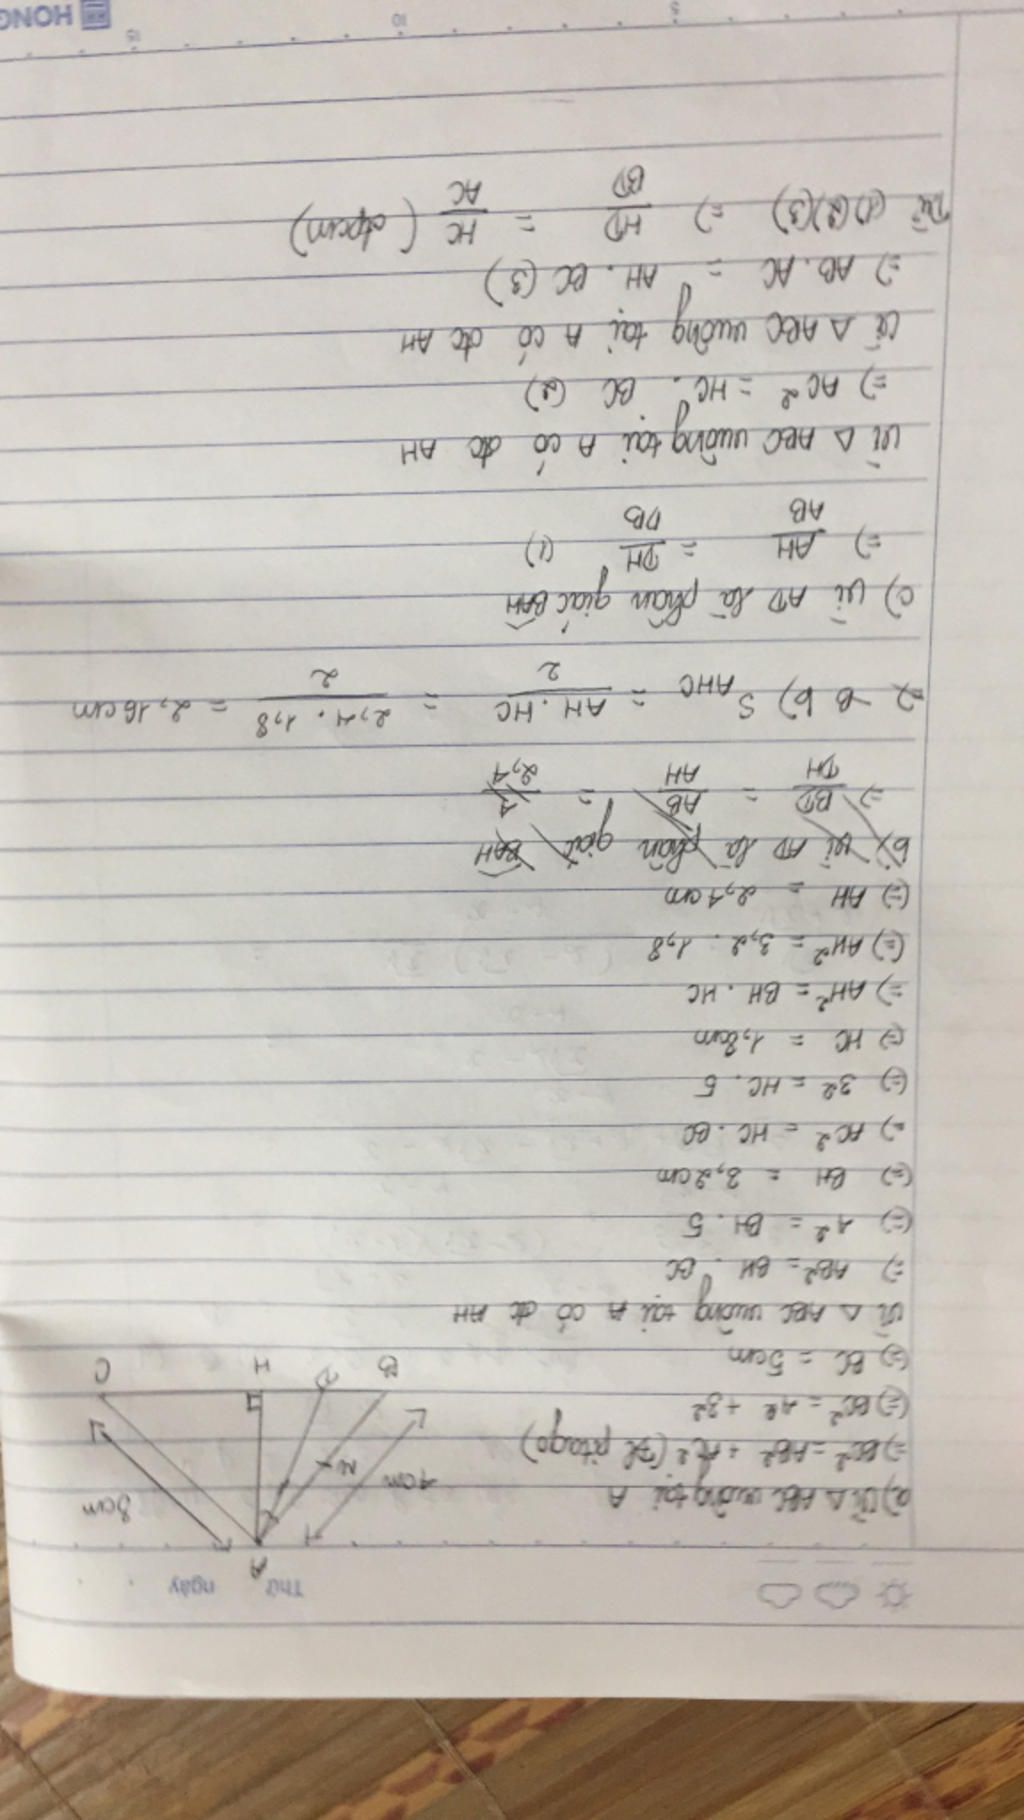 Thứ ngày
a) Vì Δ ABC vuông tại A
=) BC² = AB² + AC² (ĐL pitago)
(=) BC² = 4² + 3²
(=) BC = 5cm
Vì Δ ABC vuông tại A có đc AH
=) AB² = BH . BC
(=) 4² = BH . 5
(=) BH = 3,2cm
=) AC² = HC . BC
(=) 3² = HC . 5
(=) HC = 1,8cm
=) AH² = BH . HC
(=) AH² = 3,2 . 1,8
(=) AH = 2,4cm
b) Vì AD là phân giác BAH
=) BD/DH = AB/AH = 4/2,4
b) S AHC = AH . HC/2 = 2,4 . 1,8/2 = 2,16cm
c) Vì AD là phân giác BAH
=) AH/AB = DH/DB (1)
Vì Δ ABC vuông tại A có đc AH
=) AC² = HC . BC (2)
Vì Δ ABC vuông tại A có đc AH
=) AB . AC = AH . BC (3)
Từ (1)(2)(3) =) HD/BD = HC/AC (đpcm)
A
4cm
3cm
N
B
D
H
C
5
10
15
HONG